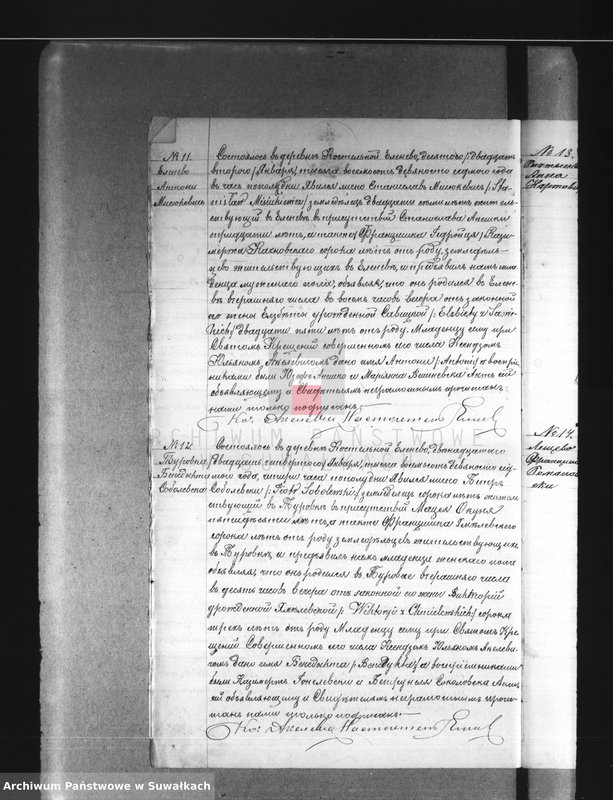 № 11.
Еленево
Антони
Мисюкевичъ
Состоялось въ деревнѣ Костельной Еленево, десятого /: двадцать
второго / Января, тысяча восемьсотъ девяносто седьмого года
въ часъ пополудни Явился лично Станиславъ Мисюкевичъ /: Sta-
nisław Misiukiewicz / земледѣлецъ двадцати восьми лѣтъ житель-
ствующій въ Еленевѣ въ присутствіи Станислава Анишки
тридцати лѣтъ, а также Францишка Гедройца / Кази-
мержа Пахновскаго сорока лѣтъ отъ роду, земледѣль-
цевъ жительствующихъ въ Еленевѣ, и предъявилъ намъ мла-
денца мужескаго пола, объявляя, что онъ родился въ Елене-
вѣ вчерашняго числа въ восемь часовъ вечера отъ законной
его жены Елзбѣты урожденной Савицкой /: Elżbiety z Sawic-
kich / двадцати пяти лѣтъ отъ роду. Младенцу сему при
Святомъ Крещеніи совершенномъ сего числа Ксендзомъ
Юліаномъ Акелевичомъ дано имя Антони /: Antoni / а воспрі-
никами были Игоръ Анишко и Маріянна Вишневска Актъ сей
объявляющему и Свидѣтелямъ неграмотнымъ прочитанъ
нами только подписанъ.
Кс. Акелевич Настоятель
№ 12.
Туровка
Бенедикта
Соболевска
Состоялось въ деревнѣ Костельной Еленево, двѣнадцатаго
/ двадцать четвертого / Января, тысяча восемьсотъ девяносто седь-
мого года, четыре часа пополудни Явился лично Петръ
Соболевски /: Piotr Sobolewski / земледѣлецъ сорока лѣтъ житель-
ствующій въ Туровкѣ въ присутствіи Мацея Окуня
пятидесяти лѣтъ, а также Францишка Хмѣлевскаго
сорока лѣтъ отъ роду земледѣльцевъ жительствующихъ
въ Туровкѣ, и предъявилъ намъ младенца женскаго пола
объявляя, что онъ родился въ Туровкѣ вчерашняго числа
въ десять часовъ вечера отъ законной его жены Викторіи
урожденной Хмѣлевской /: Wiktorji z Chmielewskich / сорока
трехъ лѣтъ отъ роду Младенцу сему при Святомъ Кре-
щеніи Совершенномъ сего числа Ксендзомъ Юліаномъ Акелеви-
чомъ дано имя Бенедикта / Benedykta / а воспріемниками
были Казимержъ Гоневски и Петрунеля Соколовска Актъ
сей объявляющему и Свидѣтелямъ неграмотнымъ прочи-
танъ нами только подписанъ.
Кс. Акелевич Настоятель
№ 13.
№ 14.
Францишка
ARCHIWUM PAŃSTWOWE
Archiwum Państwowe w Suwałkach